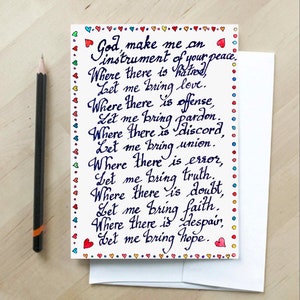 God, make me an
instrument of your peace.
Where there is hatred,
Let me bring love.
Where there is offense,
Let me bring pardon.
Where there is discord,
Let me bring union.
Where there is error,
Let me bring truth.
Where there is doubt,
Let me bring faith.
Where there is despair,
Let me bring hope.